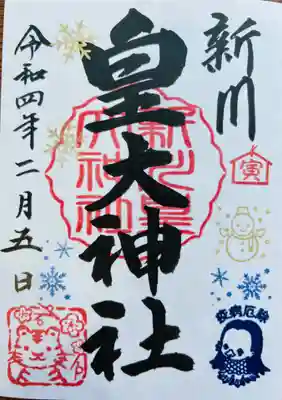 新川
寅
疫病厄除
皇大神社
新川皇大神社
令和四年二月五日